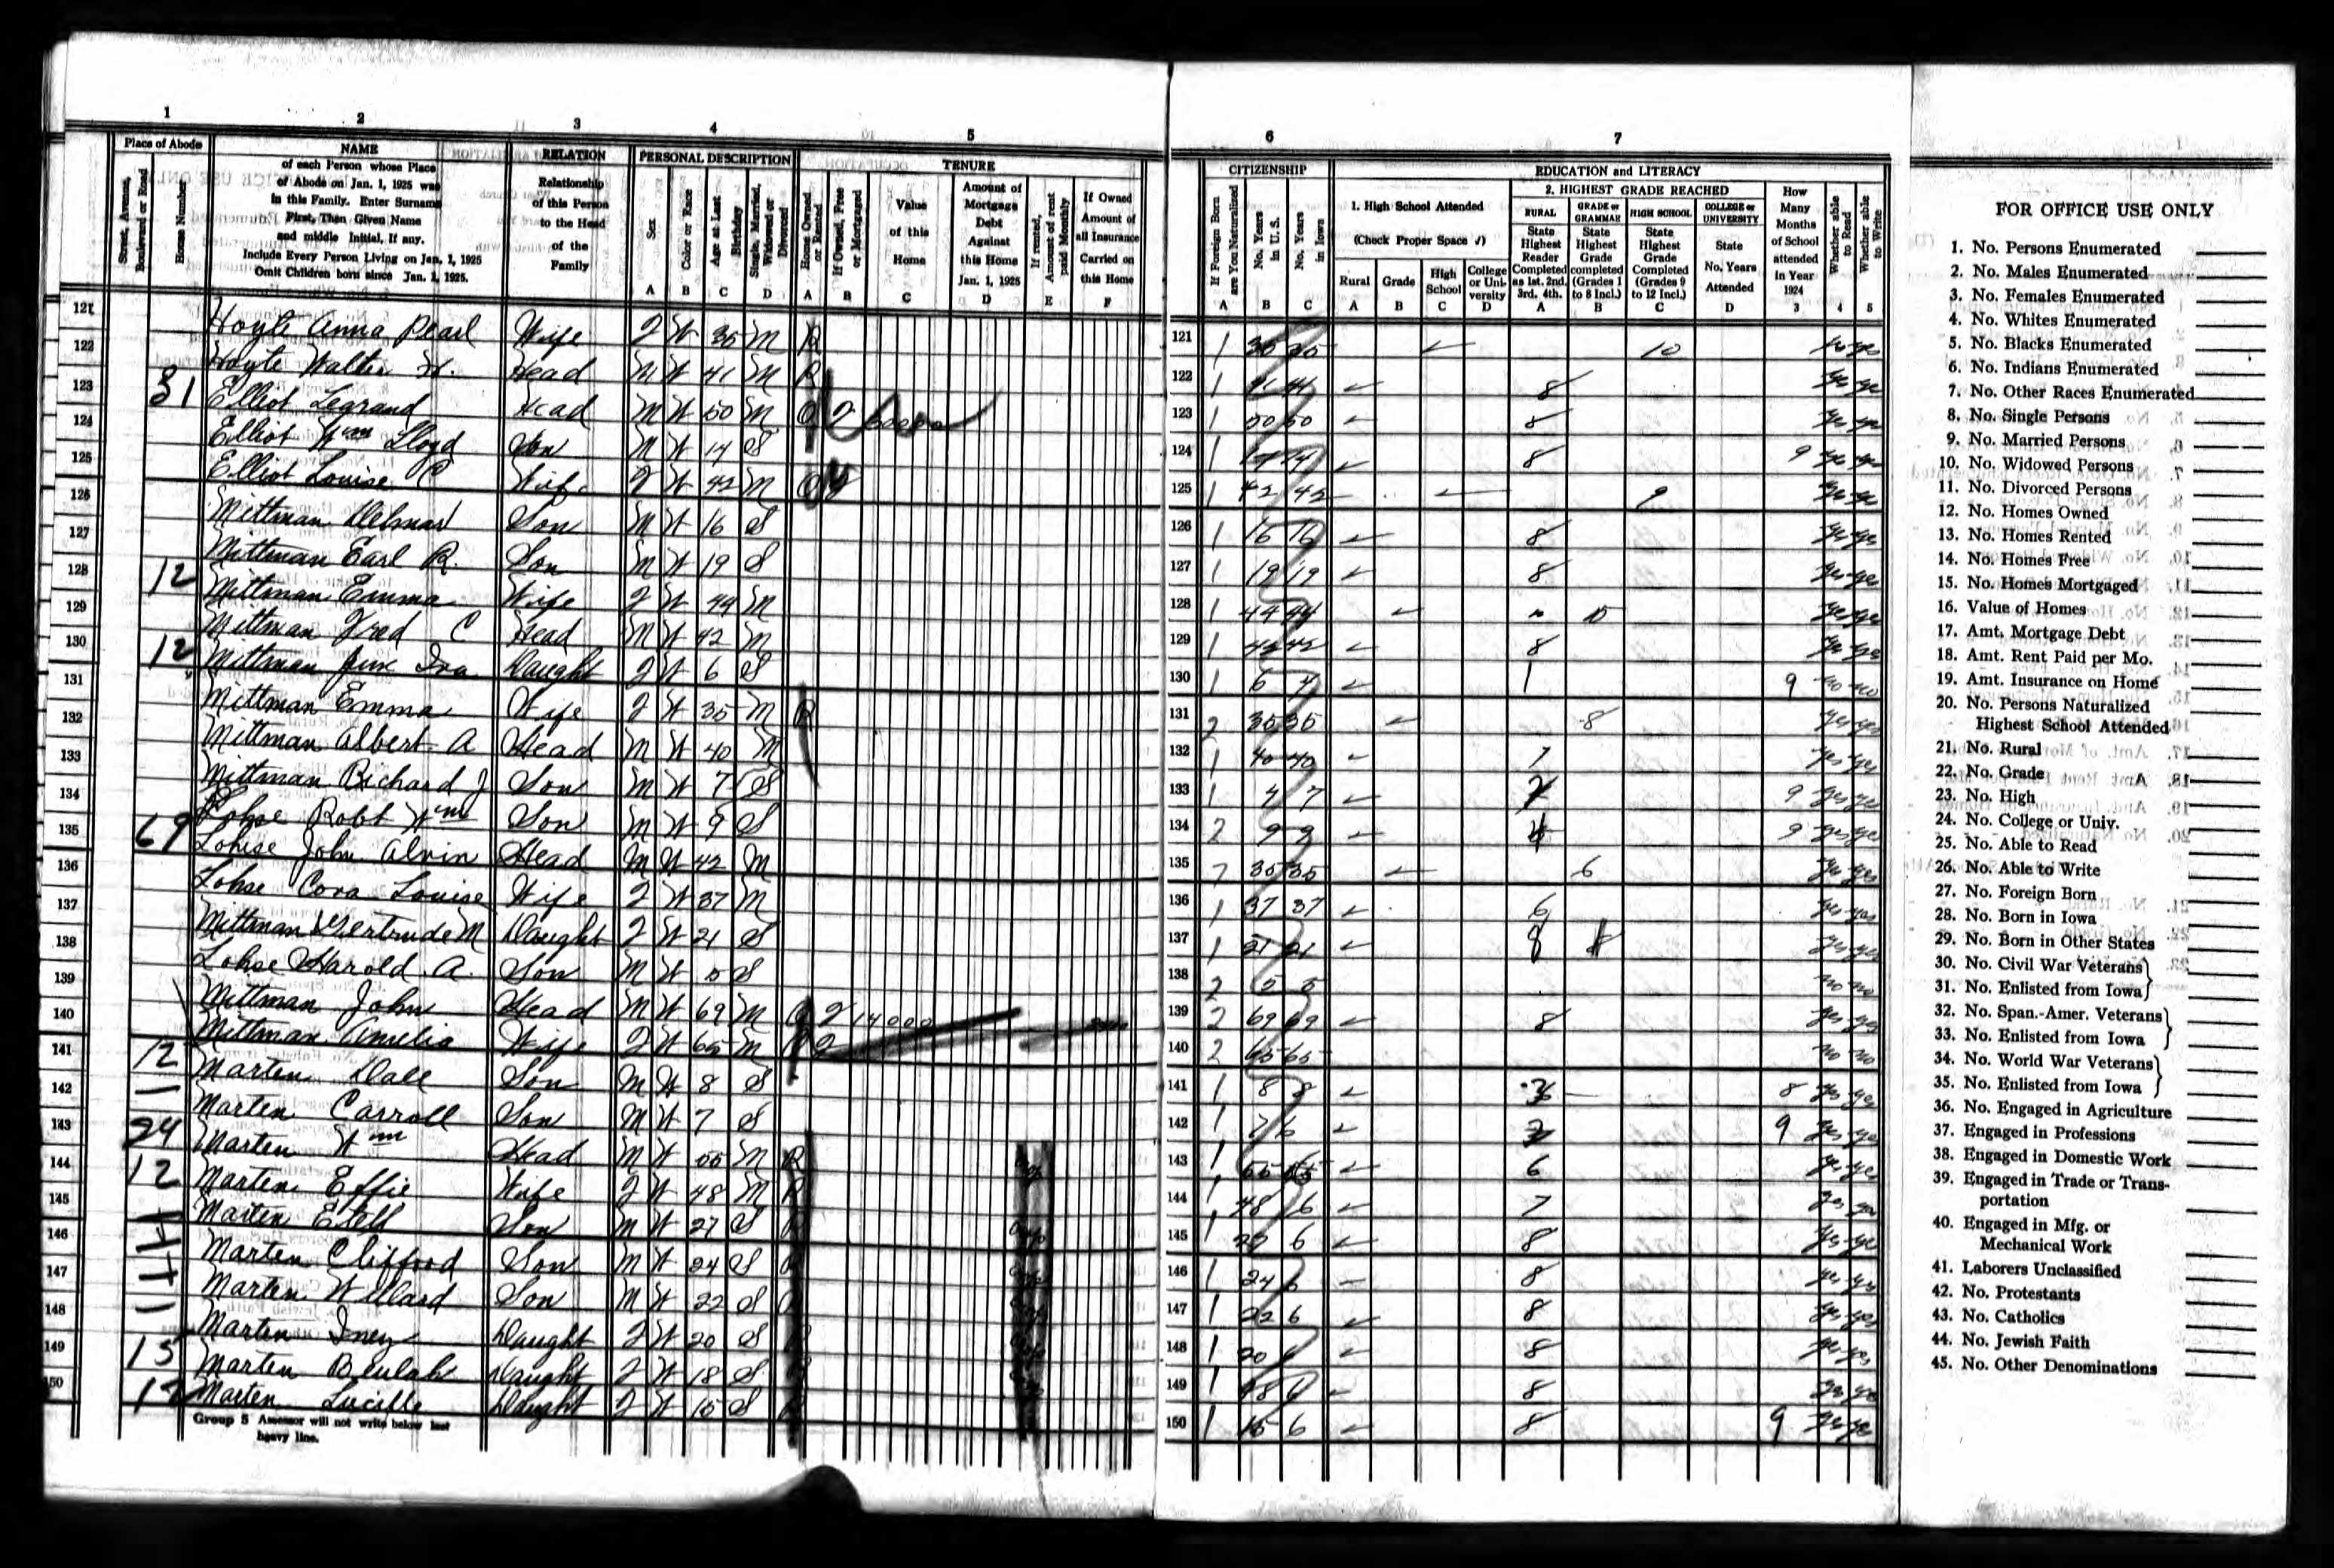 1 2 3 4 5 6 7
Place of Abode
Street, Avenue, Boulevard or Road
House Number
NAME
of each Person whose Place
of Abode on Jan. 1, 1925 was
in this Family. Enter Surname
First, Then Given Name
and middle Initial, if any.
Include Every Person Living on Jan. 1, 1925
Omit Children born since Jan. 1, 1925.
RELATION
Relationship
of this Person
to the Head
of the
Family
PERSONAL DESCRIPTION
Sex
Color or Race
Age at Last Birthday
Single, Married, Widowed or Divorced
A B C D
TENURE
Home Owned or Rented
If Owned, Free or Mortgaged
Value
of this
Home
Amount of
Mortgage
Debt
Against
this Home
Jan. 1, 1925
If rented, Amount of rent paid Monthly
If Owned
Amount of
all Insurance
Carried on
this Home
A B C D E F
CITIZENSHIP
If Foreign Born are You Naturalized
No. Years in U. S.
No. Years in Iowa
A B C
EDUCATION and LITERACY
1. High School Attended
(Check Proper Space ✓)
Rural Grade High School College or University
A B C D
2. HIGHEST GRADE REACHED
RURAL
State Highest Reader Completed as 1st, 2nd, 3rd, 4th.
GRADE or GRAMMAR
State Highest Grade completed (Grades 1 to 8 Incl.)
HIGH SCHOOL
State Highest Grade Completed (Grades 9 to 12 Incl.)
COLLEGE or UNIVERSITY
State No. Years Attended
A B C D
How Many Months of School attended in Year 1924
Whether able to Read
Whether able to Write
3 4 5
121 Hoyle Anna Pearl Wife W 35 M R 121 1 35 35 ✓ 10 yes
122 Hoyle Walter W. Head M W 41 M R 122 1 41 41 ✓ 8 yes yes
123 31 Elliot Legrand Head M W 50 M O 2 123 1 50 50 ✓ 8 yes yes
124 Elliot Wm Lloyd Son M W 14 S 124 1 14 14 ✓ 8 9 yes yes
125 Elliot Louise C Wife W 42 M O 125 1 42 42 ✓ 9 yes yes
126 Mittman Delmar Son M W 16 S 126 1 16 16 ✓ 8 yes yes
127 Mittman Earl R. Son M W 19 S 127 1 19 19 ✓ 8 yes yes
128 12 Mittman Emma Wife W 44 M 128 1 44 44 ✓ yes yes
129 Mittman Fred C Head M W 42 M 129 1 42 42 ✓ 8 yes yes
130 12 Mittman Iva Daught W 6 S 130 1 6 ✓ 1 9 no no
131 Mittman Emma Wife W 35 M R 131 2 35 35 ✓ 8 yes yes
132 Mittman Albert A Head M W 40 M 132 1 40 40 ✓ 7 yes yes
133 Mittman Richard J Son M W 7 S 133 1 7 ✓ 9 yes yes
134 Lohse Robt Wm Son M W 9 S 134 2 9 9 ✓ 4 9 yes yes
135 69 Lohse John Alvin Head M W 42 M 135 35 35 ✓ 6 yes yes
136 Lohse Cora Louise Wife W 37 M 136 1 37 37 ✓ 6 yes yes
137 Mittman Gertrude M Daught W 21 S 137 1 21 21 ✓ 8 yes yes
138 Lohse Harold A. Son M W 5 S 138 2 5 5 no no
139 Mittman John Head M W 69 M O 2 14000 139 2 69 69 ✓ 8 yes yes
140 Mittman Amelia Wife W 65 M 2 140 2 65 65 no no
141 12 Marten Dale Son M W 8 S 141 1 8 8 ✓ 8 yes yes
142 Marten Carroll Son M W 7 S 142 1 7 6 ✓ 9 yes yes
143 24 Marten Wm Head M W 55 M R 143 1 55 ✓ 6 yes yes
144 12 Marten Effie Wife W 48 M R 144 1 48 6 ✓ 7 yes yes
145 Marten Estell Son M W 27 S 145 1 27 6 ✓ 8 yes yes
146 Marten Clifford Son M W 24 S 146 1 24 6 ✓ 8 yes yes
147 Marten Willard Son M W 22 S 147 1 22 6 ✓ 8 yes yes
148 Marten Inez Daught W 20 S 148 1 20 ✓ 8 yes yes
149 15 Marten Beulah Daught W 18 S 149 1 18 ✓ 8 yes yes
150 Marten Lucille Daught W 15 S 150 1 15 6 ✓ 8 9 yes yes
Group 5 Assessor will not write below last
heavy line.
FOR OFFICE USE ONLY
1. No. Persons Enumerated
2. No. Males Enumerated
3. No. Females Enumerated
4. No. Whites Enumerated
5. No. Blacks Enumerated
6. No. Indians Enumerated
7. No. Other Races Enumerated
8. No. Single Persons
9. No. Married Persons
10. No. Widowed Persons
11. No. Divorced Persons
12. No. Homes Owned
13. No. Homes Rented
14. No. Homes Free
15. No. Homes Mortgaged
16. Value of Homes
17. Amt. Mortgage Debt
18. Amt. Rent Paid per Mo.
19. Amt. Insurance on Home
20. No. Persons Naturalized
Highest School Attended
21. No. Rural
22. No. Grade
23. No. High
24. No. College or Univ.
25. No. Able to Read
26. No. Able to Write
27. No. Foreign Born
28. No. Born in Iowa
29. No. Born in Other States
30. No. Civil War Veterans
31. No. Enlisted from Iowa
32. No. Span.-Amer. Veterans
33. No. Enlisted from Iowa
34. No. World War Veterans
35. No. Enlisted from Iowa
36. No. Engaged in Agriculture
37. Engaged in Professions
38. Engaged in Domestic Work
39. Engaged in Trade or Trans-
portation
40. Engaged in Mfg. or
Mechanical Work
41. Laborers Unclassified
42. No. Protestants
43. No. Catholics
44. No. Jewish Faith
45. No. Other Denominations